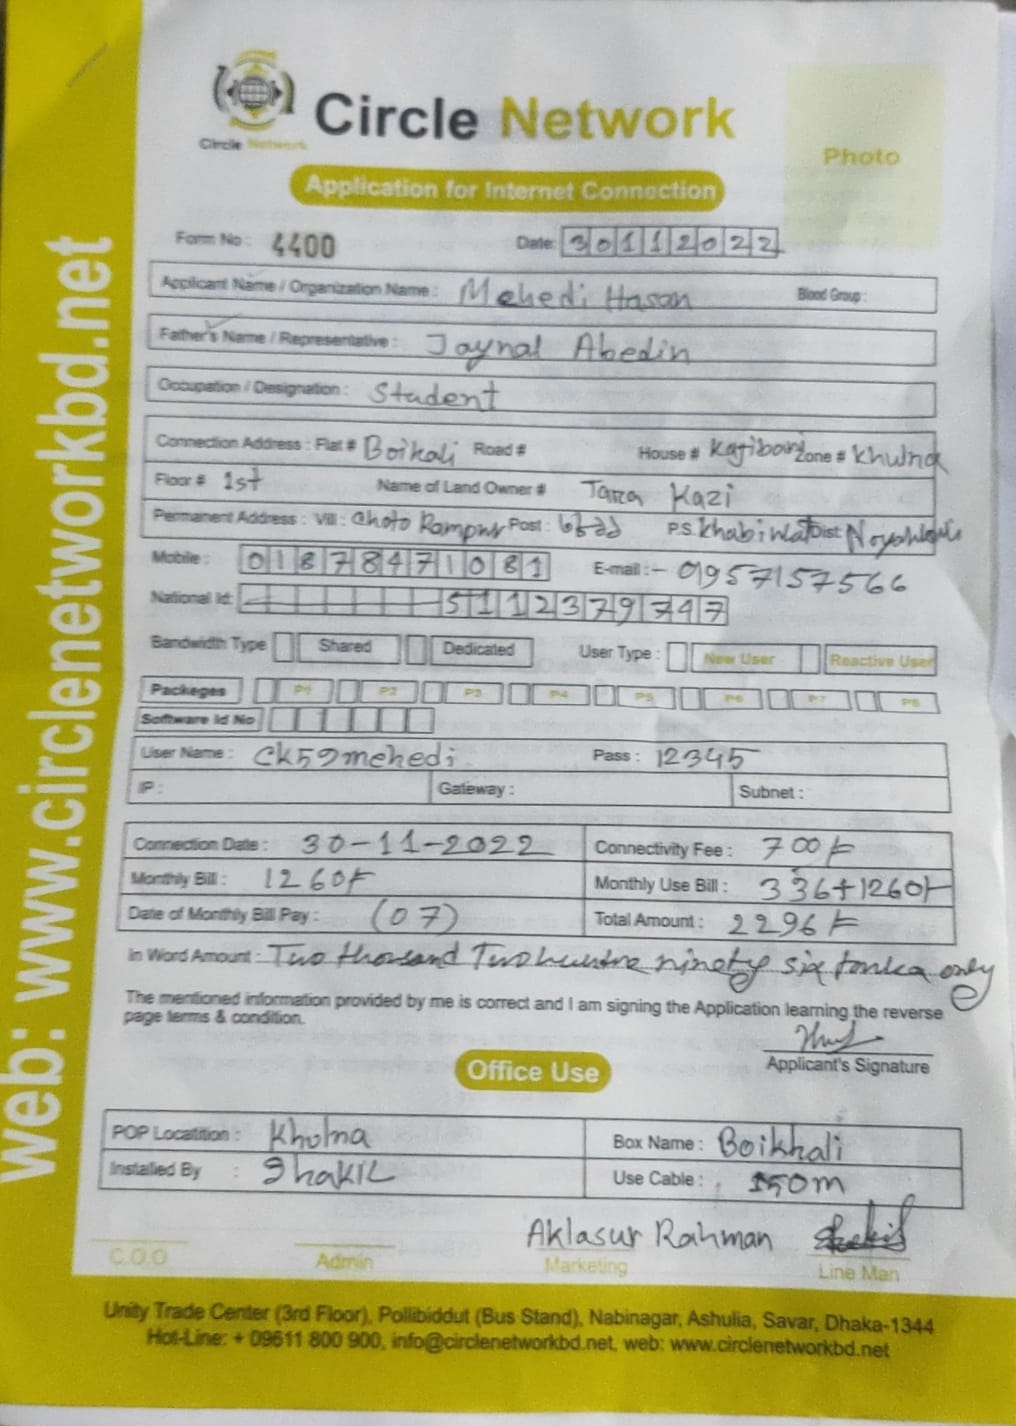 Web: www.circlenetworkbd.net
Circle Network
Circle Network
Photo
Application for Internet Connection
Form No : 4400 Date: 30112022
Applicant Name / Organization Name : Mehedi Hasan Blood Group :
Father's Name / Representative : Jaynal Abedin
Occupation / Designation : Student
Connection Address : Flat # Boikali Road # House # Kajibari Zone # Khulna
Floor # 1st Name of Land Owner # Tara Kazi
Permanent Address : Vill : Choto Rampur Post : P.S. Dist
Mobile : 01878471081 E-mail :- 01957157566
National Id: 5112379747
Bandwidth Type Shared Dedicated User Type : New User Reactive User
Packeges P1 P2 P3 P4 P5 P6 P7 P8
Software Id No
User Name : Ck59mehedi Pass : 12345
IP : Gateway : Subnet :
Connection Date : 30-11-2022 Connectivity Fee : 700/-
Monthly Bill : 1260/- Monthly Use Bill : 336+1260/-
Date of Monthly Bill Pay : (07) Total Amount : 2296/-
In Word Amount : Two thousand Two hundre ninety six tanka only
The mentioned information provided by me is correct and I am signing the Application learning the reverse
page terms & condition.
Applicant's Signature
Office Use
POP Locatition : Kholna Box Name : Boikhali
Installed By : Shakil Use Cable : 150m
Aklasur Rahman
C.O.O Admin Marketing Line Man
Unity Trade Center (3rd Floor), Pollibiddut (Bus Stand), Nabinagar, Ashulia, Savar, Dhaka-1344
Hot-Line: + 09611 800 900, info@circlenetworkbd.net, web: www.circlenetworkbd.net